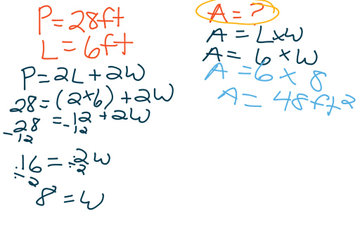 P=28ft
L=6ft
P=2L+2W
28=(2×6)+2W
28=12+2W
-12 -12
16=2W
÷2 ÷2
8=W
A=?
A=L×W
A=6×W
A=6×8
A=48ft²